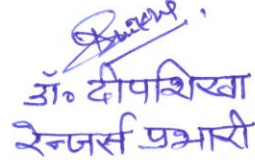 डॉ० दीपशिखा
रेन्जर्स प्रभारी